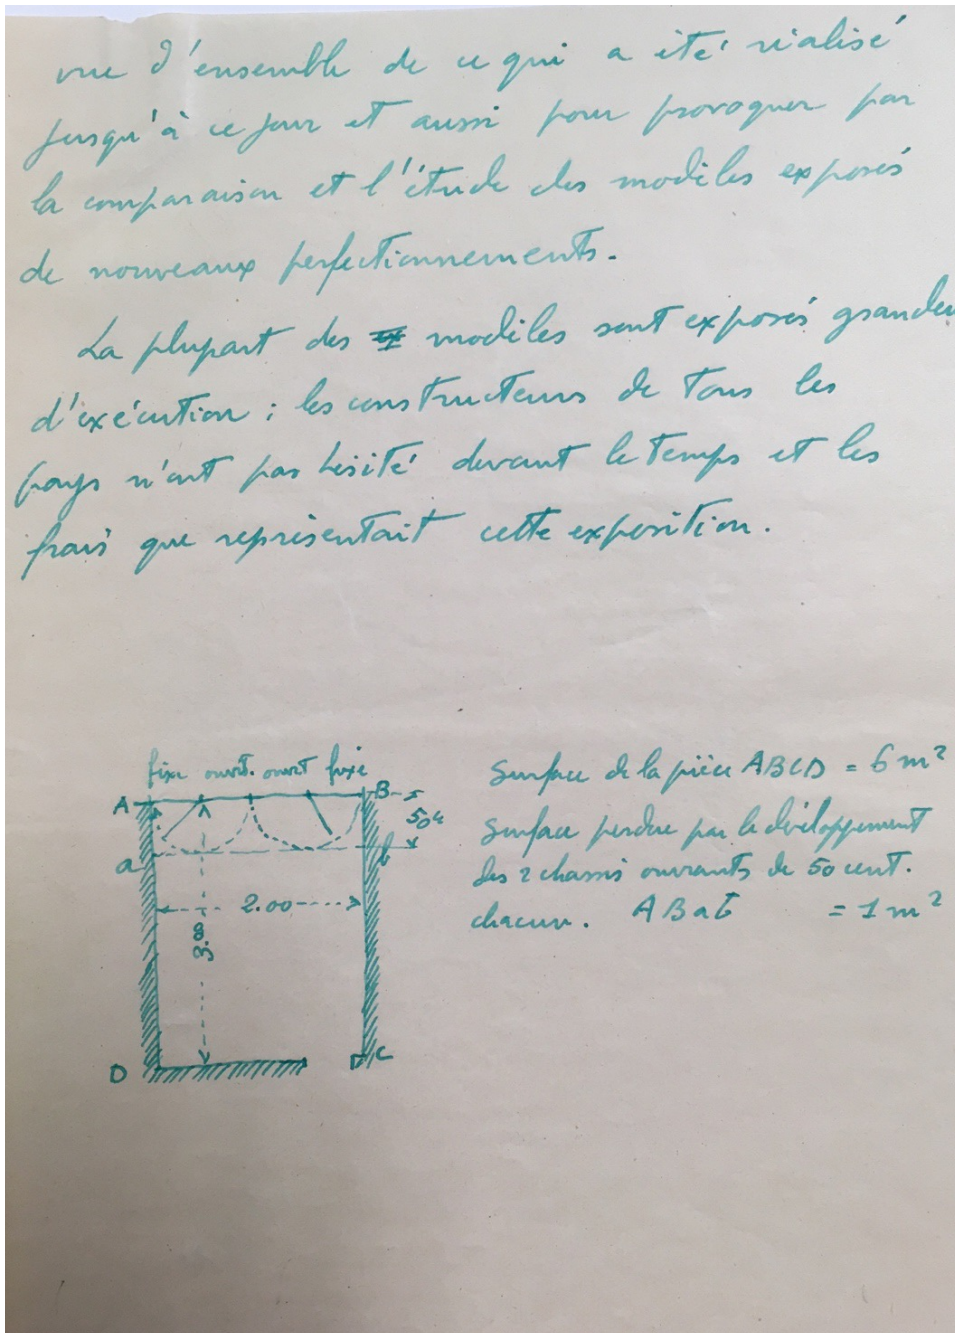 vue d'ensemble de ce qui a été réalisé
jusqu'à ce jour et aussi pour provoquer par
la comparaison et l'étude des modèles exposés
de nouveaux perfectionnements.
La plupart des modèles sont exposés grandeur
d'exécution ; les constructeurs de tous les
pays n'ont pas hésité devant le temps et les
frais que représentait cette exposition.
fixe ouvt. ouvt fixe
A B
50c
a b
2.00
3.00
D C
Surface de la pièce ABCD = 6 m²
Surface perdue par le développement
des 2 chassis ouvrants de 50 cent.
chacun. ABab = 1 m²